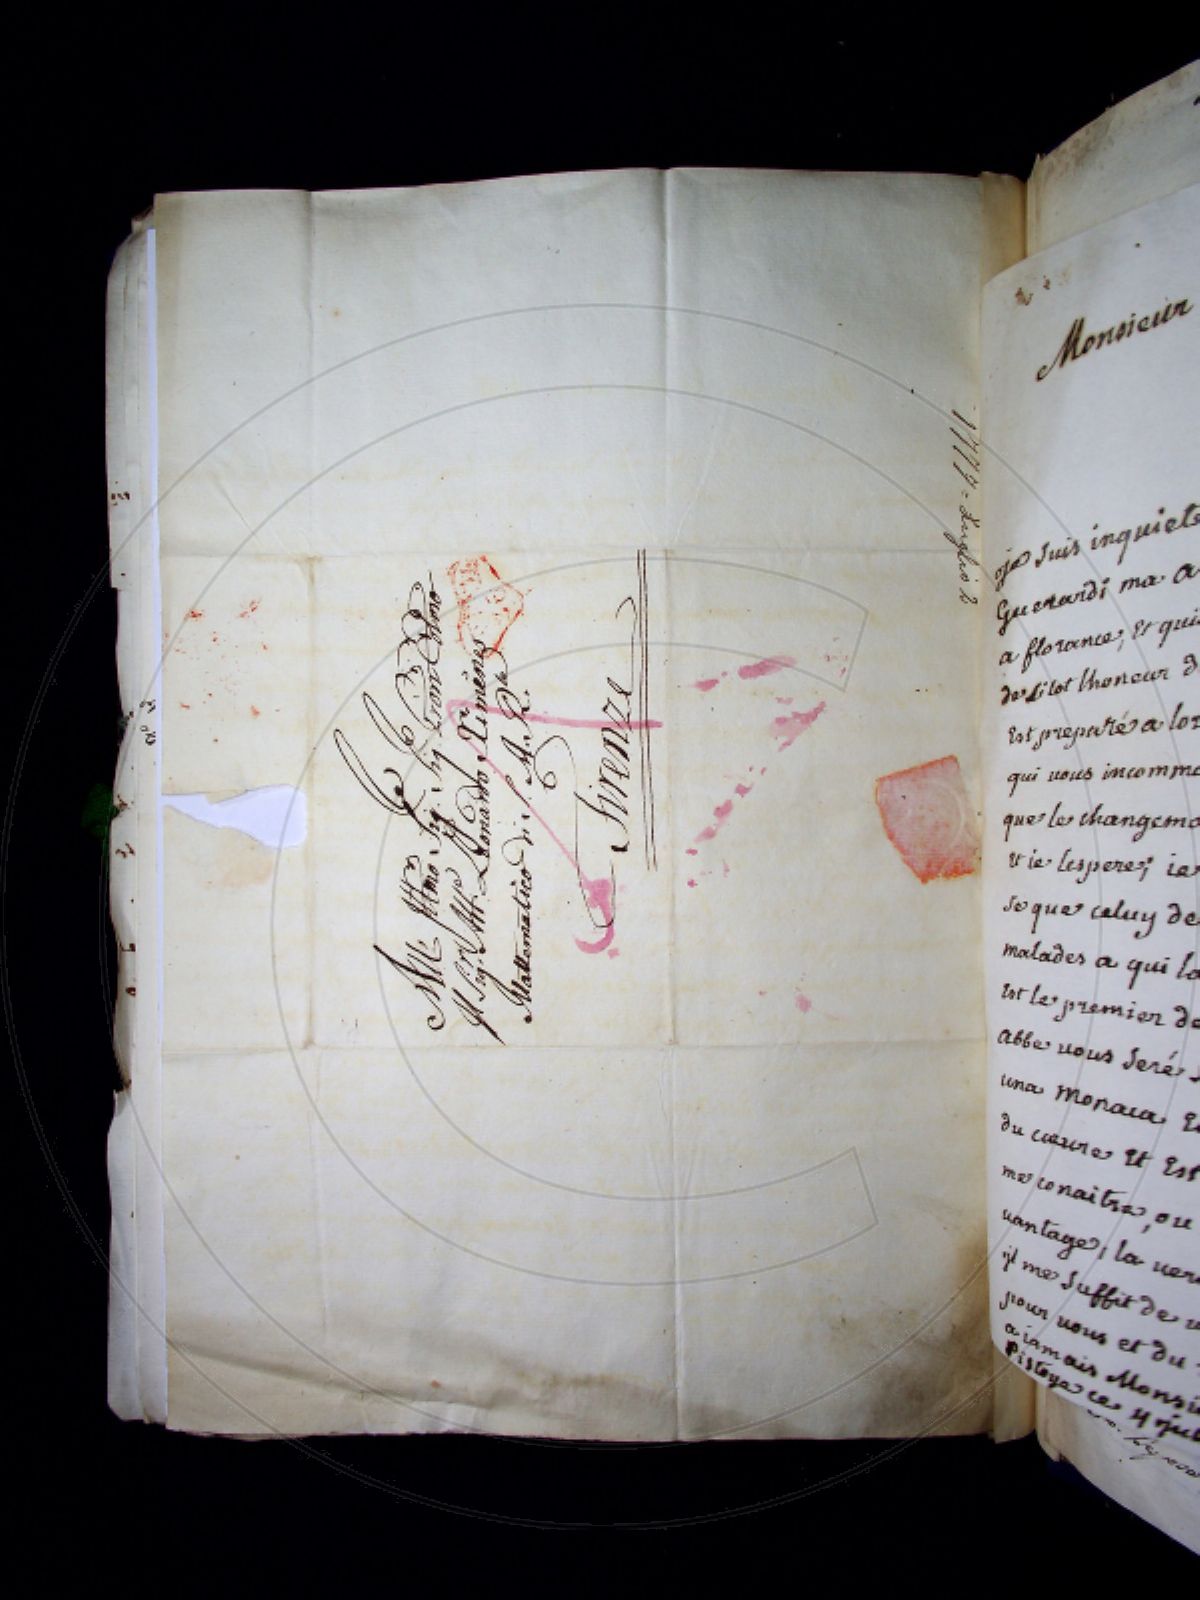 All Illmo Sig. Sig. Prone Colmo
Il Sig. Ab. Leonardo Ximenes
Mattematico di S. A. R.le
Firenze
1777 = Luglio 2
Monsieur
je suis inquiete
Guerardi ma a
a florance, et qui
de sitot lhoneur d
Est preparé a lor
qui vous incommo
que le changeme
et ie lespere; ie
so que celuy de
malades a qui la
est le premier de
abbe vous seré
una monaca
du coeure et Est
me conaitre, ou
uantage, la ueri
il me suffit de u
pour vous et du
a iamais Monsi
Pistoye ce 4 juil